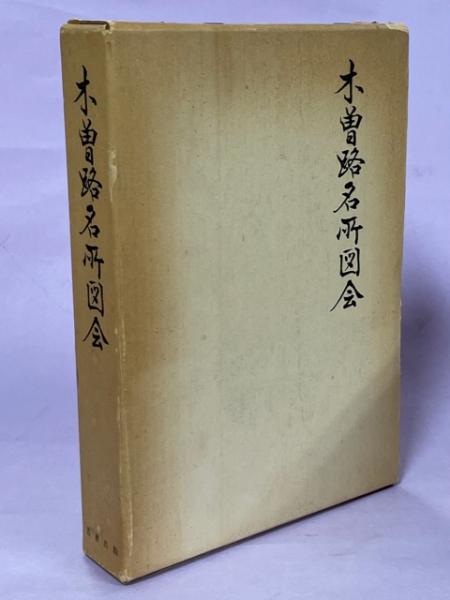 木曽路名所図会
木曽路名所図会